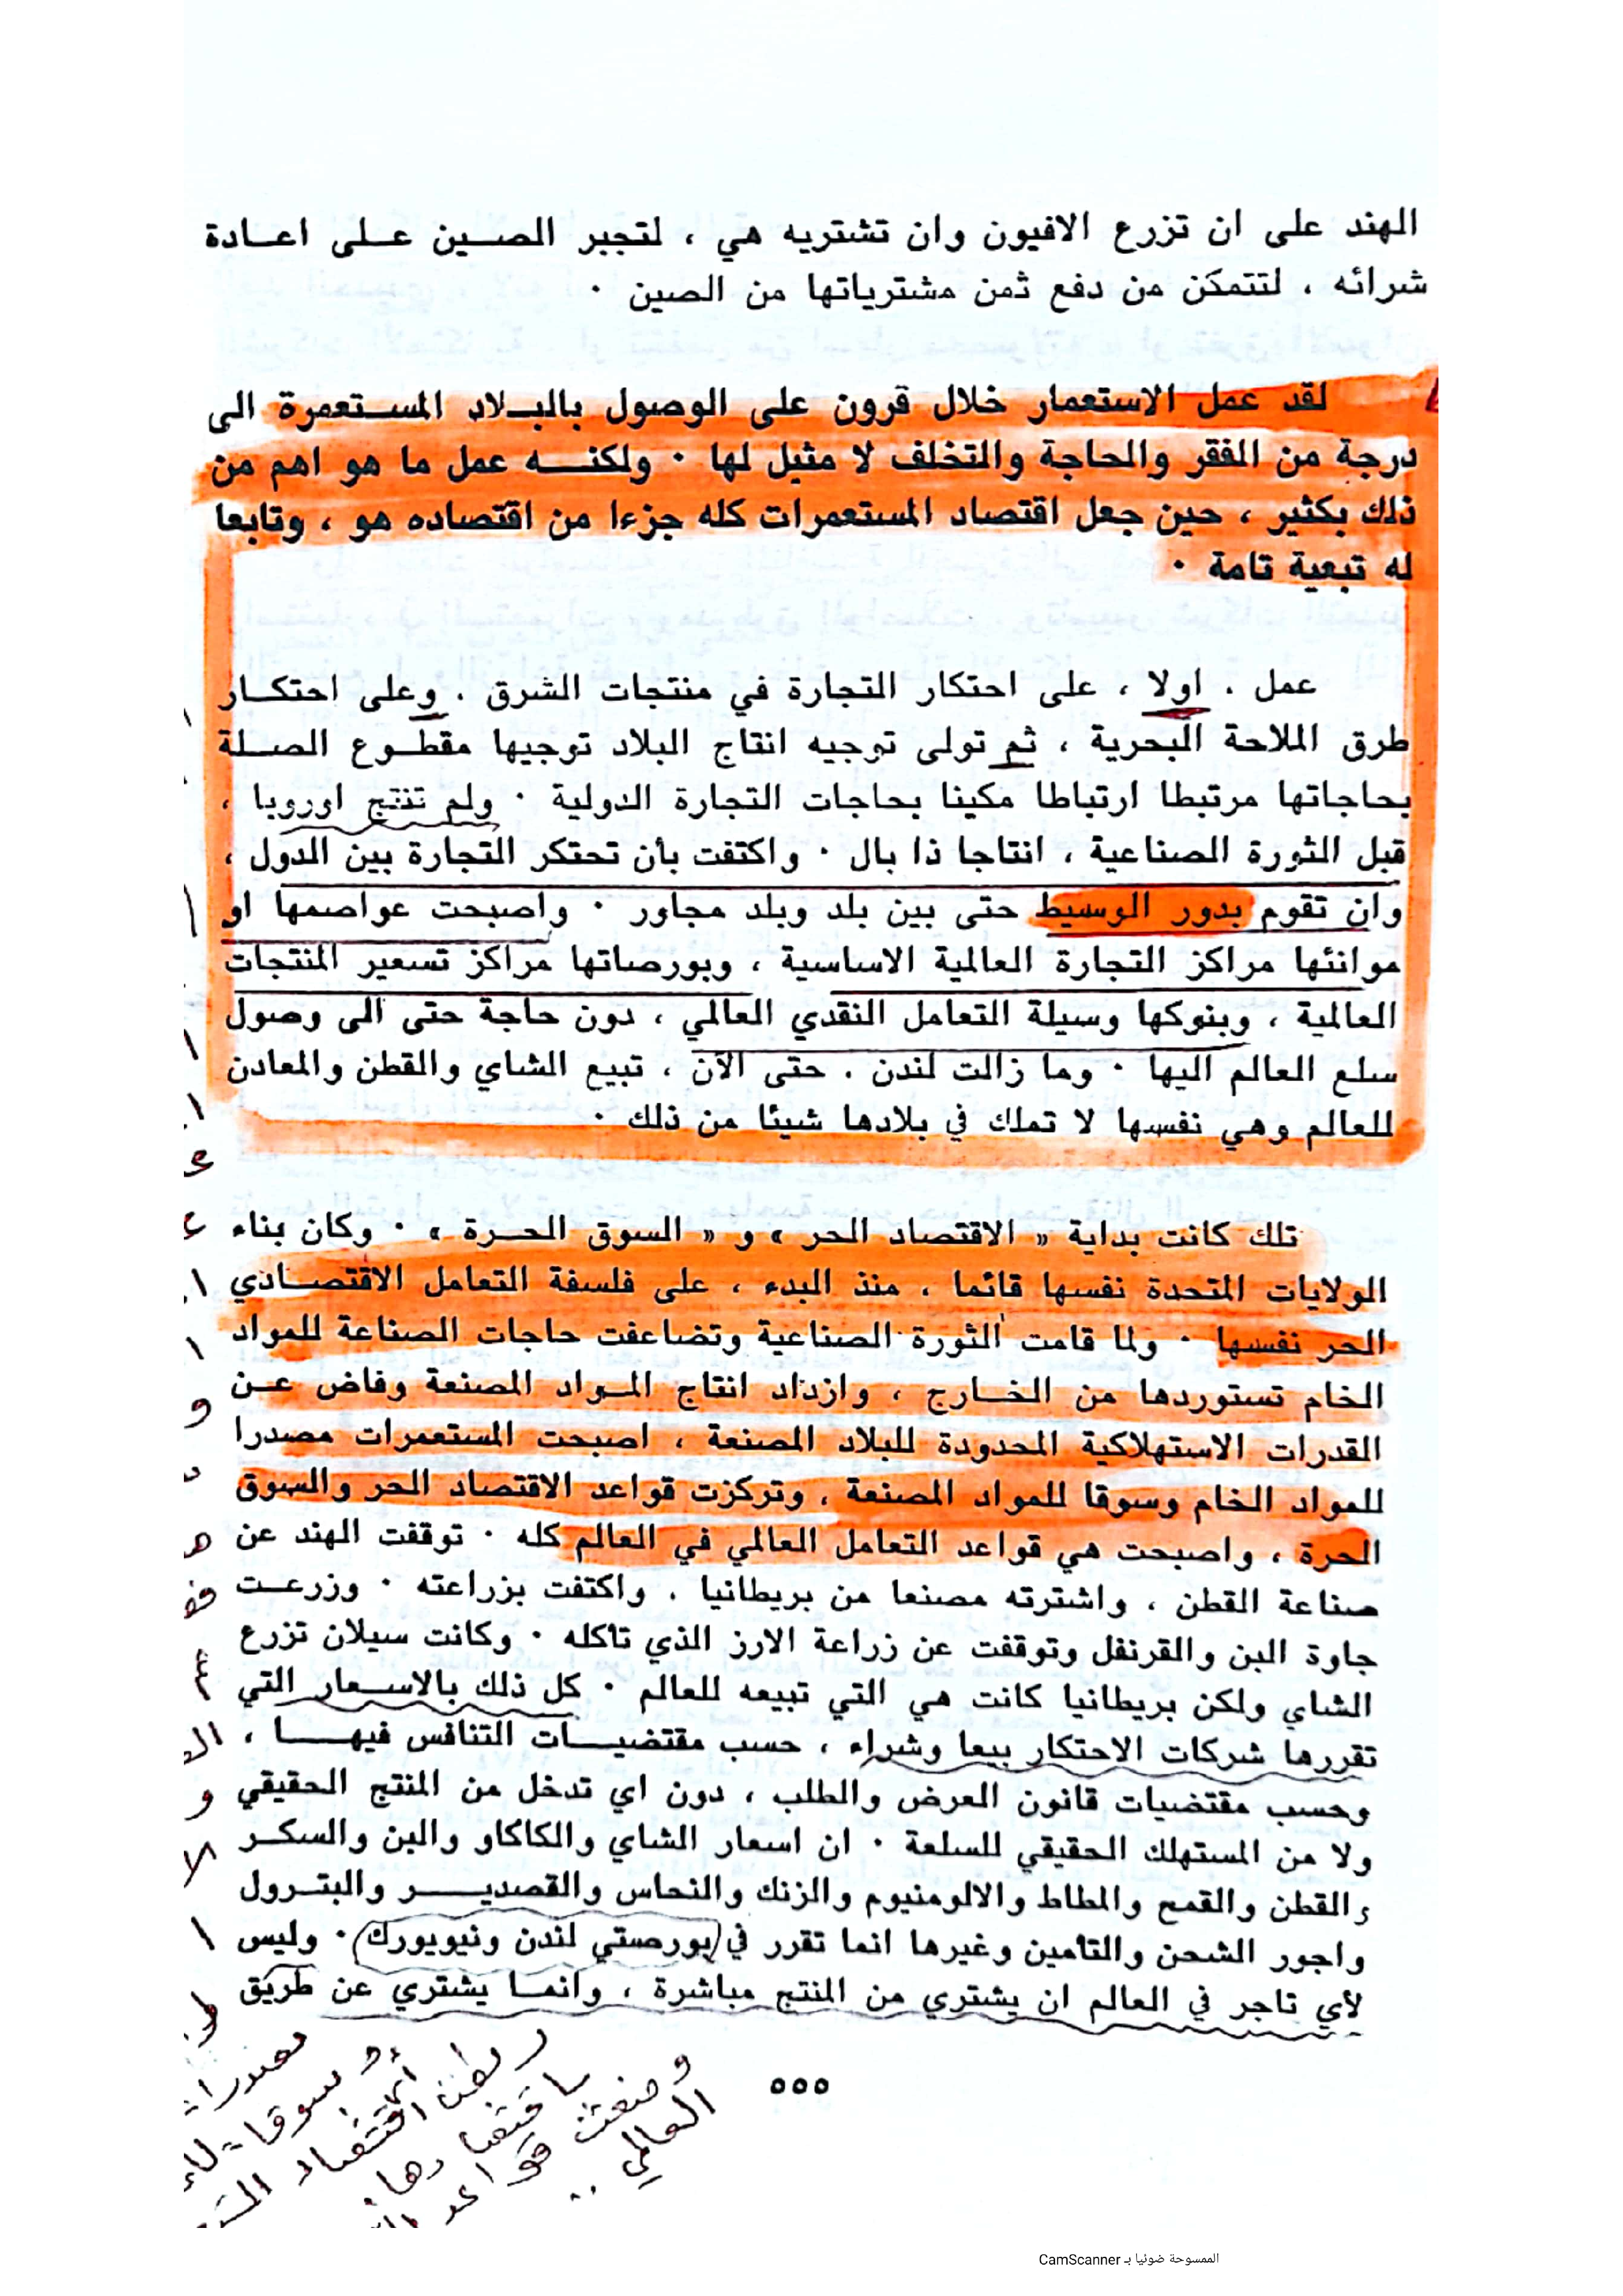 الهند على ان تزرع الافيون وان تشتريه هي ، لتجبر الصين على اعادة
شرائه ، لتتمكن من دفع ثمن مشترياتها من الصين ٠
لقد عمل الاستعمار خلال قرون على الوصول بالبلاد المستعمرة الى
درجة من الفقر والحاجة والتخلف لا مثيل لها ٠ ولكنه عمل ما هو اهم من
ذلك بكثير ، حين جعل اقتصاد المستعمرات كله جزءا من اقتصاده هو ، وتابعا
له تبعية تامة ٠
عمل ، اولا ، على احتكار التجارة في منتجات الشرق ، وعلى احتكار
طرق الملاحة البحرية ، ثم تولى توجيه انتاج البلاد توجيها مقطوع الصلة
بحاجاتها مرتبطا ارتباطا مكينا بحاجات التجارة الدولية ٠ ولم تنتج اوروبا ،
قبل الثورة الصناعية ، انتاجا ذا بال ٠ واكتفت بأن تحتكر التجارة بين الدول ،
وان تقوم بدور الوسيط حتى بين بلد وبلد مجاور ٠ واصبحت عواصمها او
موانئها مراكز التجارة العالمية الاساسية ، وبورصاتها مراكز تسعير المنتجات
العالمية ، وبنوكها وسيلة التعامل النقدي العالمي ، دون حاجة حتى الى وصول
سلع العالم اليها ٠ وما زالت لندن ، حتى الآن ، تبيع الشاي والقطن والمعادن
للعالم وهي نفسها لا تملك في بلادها شيئا من ذلك ٠
تلك كانت بداية « الاقتصاد الحر » و « السوق الحرة » ٠ وكان بناء
الولايات المتحدة نفسها قائما ، منذ البدء ، على فلسفة التعامل الاقتصادي
الحر نفسها ٠ ولما قامت الثورة الصناعية وتضاعفت حاجات الصناعة للمواد
الخام تستوردها من الخارج ، وازداد انتاج المواد المصنعة وفاض عن
القدرات الاستهلاكية المحدودة للبلاد المصنعة ، اصبحت المستعمرات مصدرا
للمواد الخام وسوقا للمواد المصنعة ، وتركزت قواعد الاقتصاد الحر والسوق
الحرة ، واصبحت هي قواعد التعامل العالمي في العالم كله ٠ توقفت الهند عن
صناعة القطن ، واشترته مصنعا من بريطانيا ، واكتفت بزراعته ٠ وزرعت
جاوة البن والقرنفل وتوقفت عن زراعة الارز الذي تاكله ٠ وكانت سيلان تزرع
الشاي ولكن بريطانيا كانت هي التي تبيعه للعالم ٠ كل ذلك بالاسعار التي
تقررها شركات الاحتكار بيعا وشراء ، حسب مقتضيات التنافس فيها ،
وحسب مقتضيات قانون العرض والطلب ، دون اي تدخل من المنتج الحقيقي
ولا من المستهلك الحقيقي للسلعة ٠ ان اسعار الشاي والكاكاو والبن والسكر
والقطن والقمح والمطاط والالومنيوم والزنك والنحاس والقصدير والبترول
واجور الشحن والتامين وغيرها انما تقرر في بورصتي لندن ونيويورك ٠ وليس
لأي تاجر في العالم ان يشتري من المنتج مباشرة ، وانما يشتري عن طريق
٥٥٥
العالمي ..
الممسوحة ضوئيا بـ CamScanner